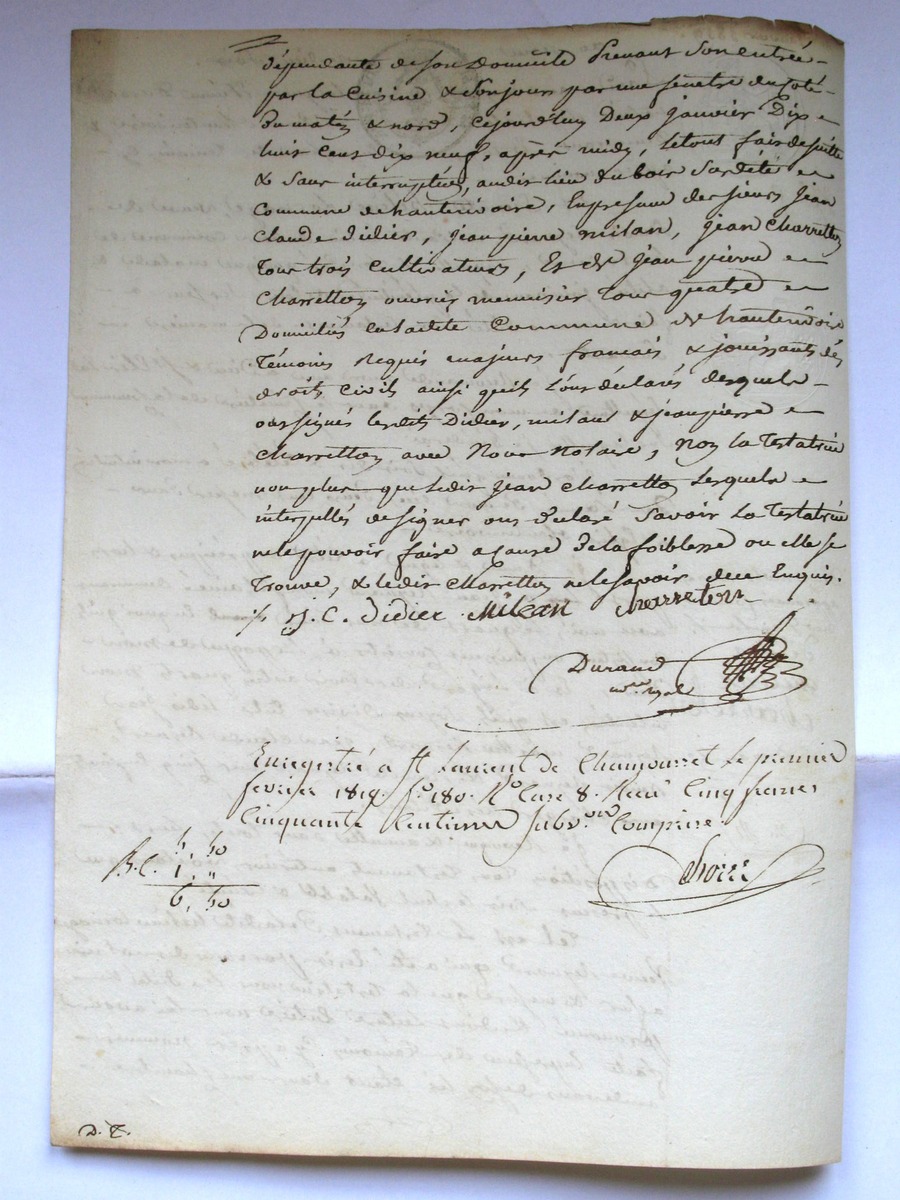 dépendante de son Domicile Prenant son entrée
par la Cuisine & son jours par une fenêtre du Coté
du matin & nord, Cejourd'huy Deux janvier Dix
huit Cent dix neuf, après midy, le tout fait de suitte
& sans interruption, audit lieu du bois Sardeté
Commune de hauterivoire, En presence des sieurs Jean
Claude Didier, jean pierre milan, jean Charretton
tous trois Cultivateurs, Et de jean pierre
Charretton ouvrier menuisier tous quatre
Domiciliés en laditte Commune de hauterivoire
témoins Requis majeurs francais & jouissants des
droits civils ainsi quils L'ont déclarés desquels
ont signés lesdits Didier, milant & jean pierre
Charretton avec Nous notaire, Non la testatrice
non plus que ledit jean Charretton Lesquels
interpellés de signer ont déclaré Savoir La testatrice
ne le pouvoir faire a cause de la foiblesse ou elle se
trouve, & ledit Charretton ne le Savoir de ce Enquis.
J. C. Didier Milan Charreton
Durand
nre. royal
Enregistré a St Laurent de Chamousset Le premier
fevrier 1819. fo. 180. Ro. Case 8. Recu Cinq francs
Cinquante Centimes Subv.on Comprise.
5, 50
B.C. 1, "
6, 50
D. T.